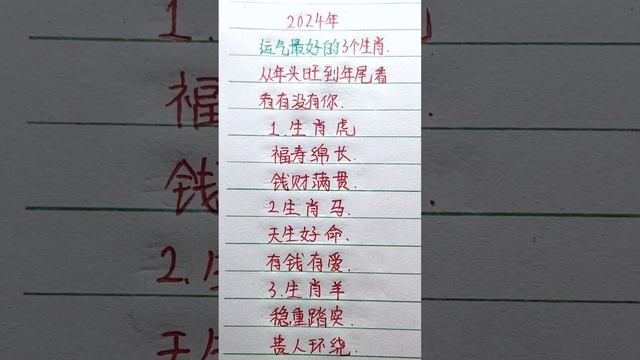 2024年
运气最好的3个生肖.
从年头旺到年尾看
看有没有你.
1.生肖虎
福寿绵长.
钱财满贯.
2.生肖马
天生好命.
有钱有爱.
3.生肖羊
稳重踏实.
贵人环绕.